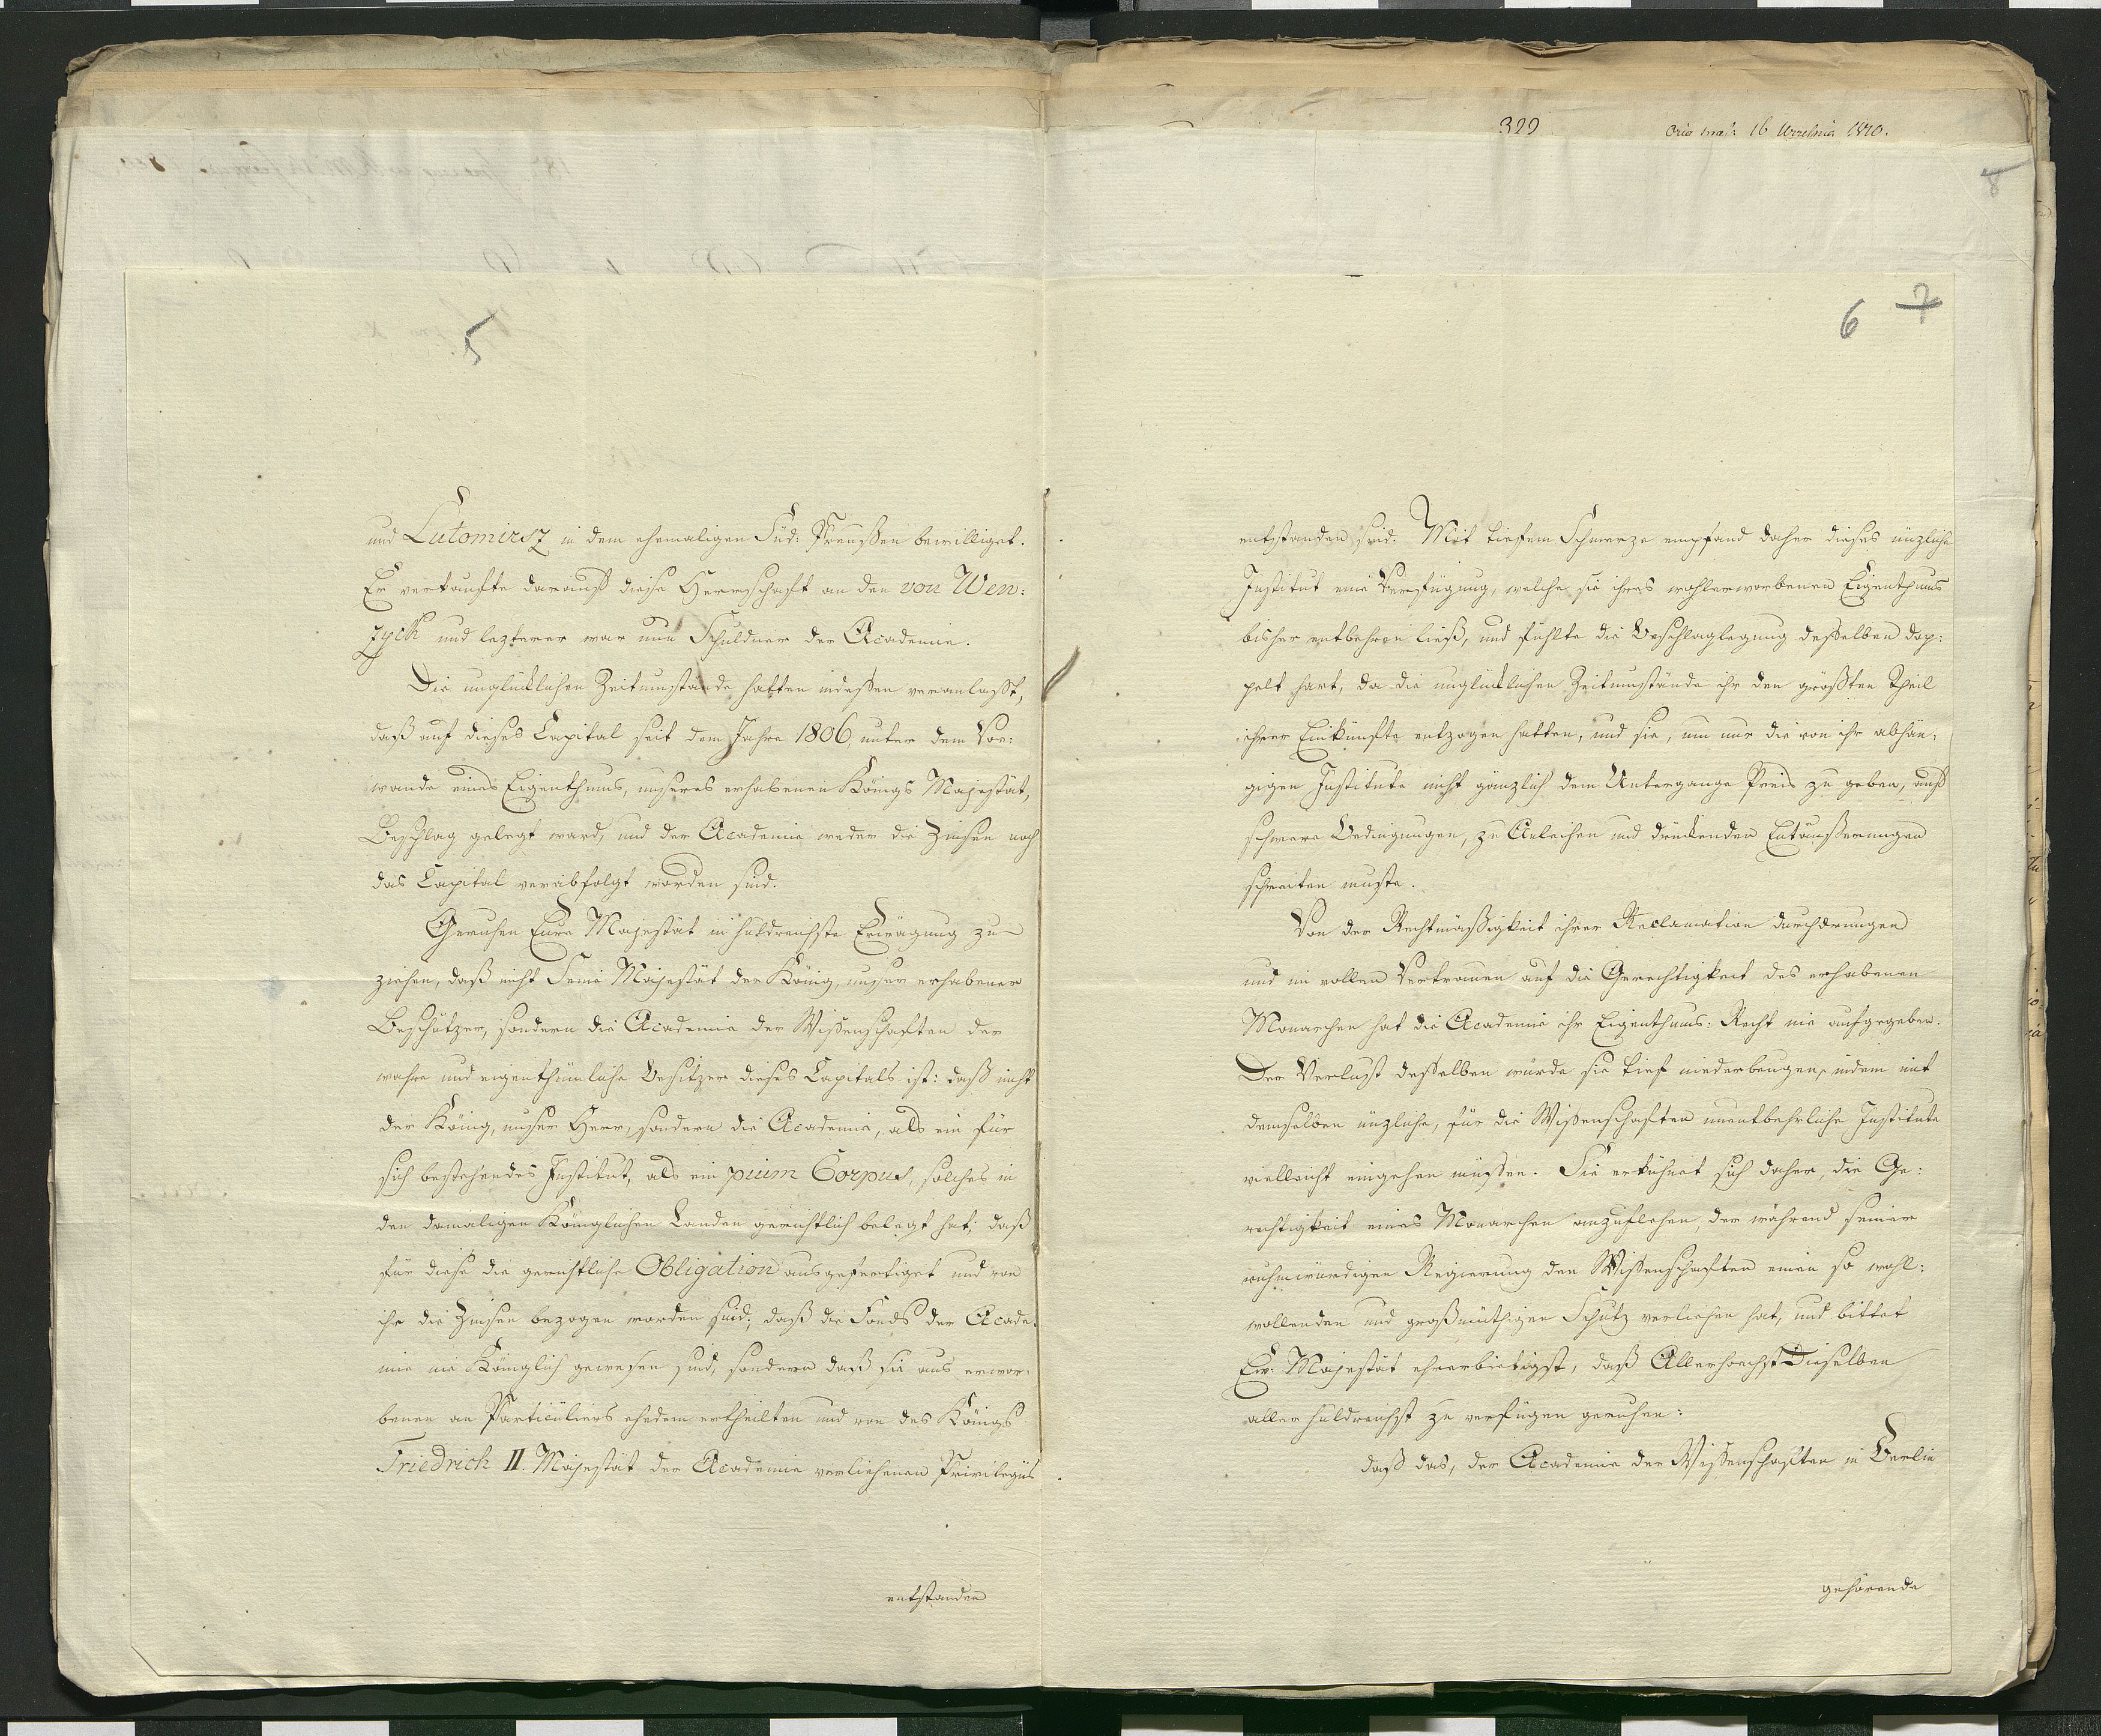 5
und Lutomirsz in dem ehemaligen Süd: Preußen bewilliget.
Er verkaufte darauf diese Herrschaft an den von Wen:
zyck und lezterer war nun Schuldner der Academie.
Die unglücklichen Zeitumstände hatten indessen veranlaßt,
daß auf dieses Capital seit dem Jahre 1806, unter dem Vor:
wande eines Eigenthums, unseres erhabenen Königs Majestät,
Beschlag gelegt ward, und der Academie weder die Zinsen noch
das Capital verabfolgt worden sind.
Geruhen Eure Majestät in huldreichste Erwägung zu
ziehen, daß nicht Seine Majestät der König, unser erhabener
Beschützer, sondern die Academie der Wissenschaften der
wahre und eigenthümliche Besitzer dieses Capitals ist: daß nicht
der König, unser Herr, sondern die Academie, als ein für
sich bestehendes Institut, als ein pium Corpus, solches in
den damaligen Königlichen Landen gerichtlich belegt hat; daß
für diese die gerichtliche Obligation ausgefertiget und von
ihr die Zinsen bezogen worden sind; daß die Fonds der Acade:
mie nie Königlich gewesen sind, sondern daß sie aus erwor:
benen an Particuliers ehedem ertheilten und von des Königs
Friedrich II. Majestät der Academie verliehenen Privilegiis
entstanden
399 16 Września 1810.
8
6 7
entstanden sind. Mit tiefem Schmerze empfand daher dieses nüzliche
Institut eine Verfügung, welche sie ihres wohlerworbenen Eigenthums
bisher entbehren ließ, und fühlte die Beschlaglegung desselben dop:
pelt hart, da die unglücklichen Zeitumstände ihr den größten Theil
ihrer Einkünfte entzogen hatten, und sie, um nur die von ihr abhän:
gigen Institute nicht gänzlich dem Untergange Preis zu geben, auf
schwere Bedingungen, zu Anleihen und drückenden Entäußerungen
schreiten muste.
Von der Rechtmäßigkeit ihrer Reclamation durchdrungen
und im vollen Vertrauen auf die Gerechtigkeit des erhabenen
Monarchen hat die Academie ihr Eigenthums: Recht nie aufgegeben.
Der Verlust desselben würde sie tief niederbeugen, indem mit
demselben nüzliche, für die Wissenschaften unentbehrliche Institute
vielleicht eingehen müssen. Sie erkühnet sich daher, die Ge:
rechtigkeit eines Monarchen anzuflehen, der während seiner
ruhmwürdigen Regierung den Wissenschaften einen so wohl:
wollenden und großmüthigen Schutz verliehen hat, und bittet
Ew. Majestät ehrerbietigst, daß Allerhoechst Dieselben
allerhuldreichst zu verfügen geruhen:
daß das, der Academie der Wissenschaften in Berlin
gehörende